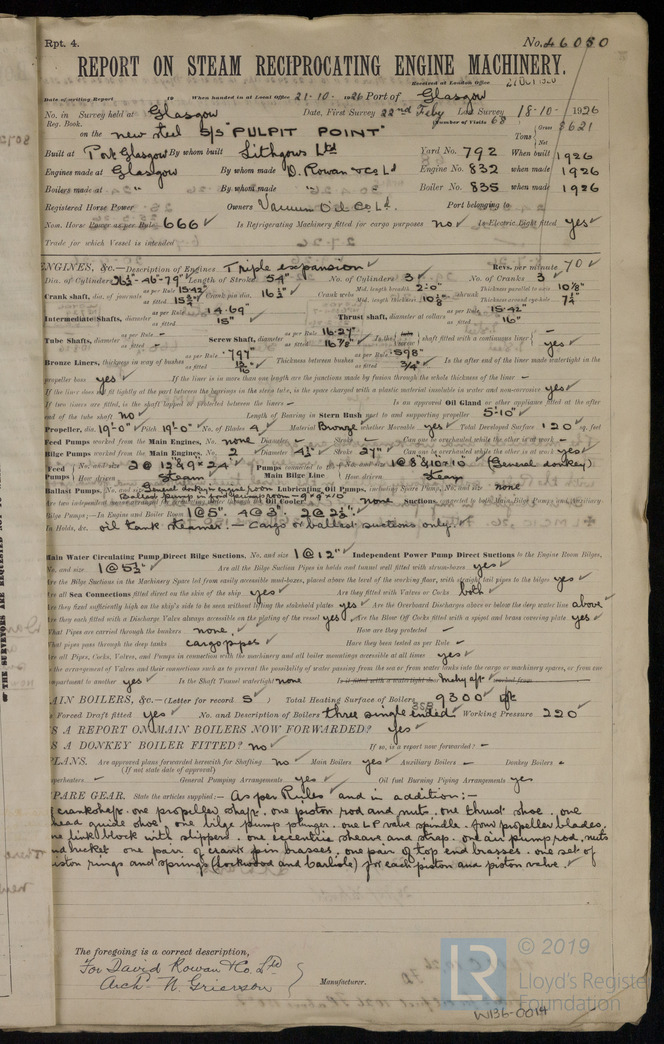 Rpt. 4. No. 46080
REPORT ON STEAM RECIPROCATING ENGINE MACHINERY.
Received at London Office
Date of writing Report 19 When handed in at Local Office 21-10-1926 Port of Glasgow
No. in Survey held at Glasgow Date, First Survey 22nd Feby Last Survey 18-10-1926
Reg. Book. (Number of Visits 68
on the new steel S/S "PULPIT POINT" Tons Gross 8621
Net
Built at Port Glasgow By whom built Lithgows Ltd Yard No. 792 When built 1926
Engines made at Glasgow By whom made D. Rowan & Co Ld Engine No. 832 when made 1926
Boilers made at " By whom made " Boiler No. 835 when made 1926
Registered Horse Power Owners Vacuum Oil Co Ld. Port belonging to
Nom. Horse Power as per Rule 666 Is Refrigerating Machinery fitted for cargo purposes no Is Electric Light fitted yes
Trade for which Vessel is intended
ENGINES, &c.—Description of Engines Triple expansion Revs. per minute 70
Dia. of Cylinders 26½-46-79" Length of Stroke 54" No. of Cylinders 3 No. of Cranks 3
Crank shaft, dia. of journals as per Rule 15.42 as fitted 15¾" Crank pin dia. 16½" Crank webs Mid. length breadth 2'-0" Mid. length thickness 10⅛" shrunk Thickness parallel to axis 10⅛" Thickness around eye hole 7¼"
Intermediate Shafts, diameter as per Rule 14.69 as fitted 15" Thrust shaft, diameter at collars as per Rule 15.42 as fitted 16"
Tube Shafts, diameter as per Rule - as fitted - Screw Shaft, diameter as per Rule 16.27 as fitted 16⅞" Is the shaft fitted with a continuous liner yes
Bronze Liners, thickness in way of bushes as per Rule .797 as fitted 13/16 Thickness between bushes as per Rule .598 as fitted ¾" Is the after end of the liner made watertight in the
propeller boss yes If the liner is in more than one length are the junctions made by fusion through the whole thickness of the liner -
If the liner does not fit tightly at the part between the bearings in the stern tube, is the space charged with a plastic material insoluble in water and non-corrosive yes
If two liners are fitted, is the shaft lapped or protected between the liners - Is an approved Oil Gland or other appliance fitted at the after
end of the tube shaft no Length of Bearing in Stern Bush next to and supporting propeller 5'-10"
Propeller, dia 19'-0" Pitch 19'-0" No. of Blades 4 Material Bronze whether Moveable yes Total Developed Surface 120 sq. feet
Feed Pumps worked from the Main Engines, No. none Diameter - Stroke - Can one be overhauled while the other is at work -
Bilge Pumps worked from the Main Engines, No. 2 Diameter 4½" Stroke 27" Can one be overhauled while the other is at work yes
Feed Pumps No. and size 2 @ 12 & 9 × 24" How driven Steam Pumps connected to the Main Bilge Line No. and size 1 @ 8 & 10 × 10 (General donkey) How driven Steam
Ballast Pumps, No. and size General donkey in engine room Lubricating Oil Pumps, including Spare Pump, No. and size none
Ballast pump in ford pump room - 9×9×10"
Are two independent Oil Cooler none Suctions, connected to both Main Bilge Pumps and Auxiliary
Bilge Pumps:—In Engine and Boiler Room 1@5". 4@3". 2@2½"
In Holds, &c. oil tank steamer:- Cargo or ballast suctions only.
Main Water Circulating Pump Direct Bilge Suctions, No. and size 1 @ 12" Independent Power Pump Direct Suctions to the Engine Room Bilges,
No. and size 1 @ 5½" Are all the Bilge Suction Pipes in holds and tunnel well fitted with strum-boxes yes
Are the Bilge Suctions in the Machinery Space led from easily accessible mud-boxes, placed above the level of the working floor, with straight tail pipes to the bilges yes
Are all Sea Connections fitted direct on the skin of the ship yes Are they fitted with Valves or Cocks both
Are they fixed sufficiently high on the ship's side to be seen without lifting the stokehold plates yes Are the Overboard Discharges above or below the deep water line above
Are they each fitted with a Discharge Valve always accessible on the plating of the vessel yes Are the Blow Off Cocks fitted with a spigot and brass covering plate yes
What Pipes are carried through the bunkers none. How are they protected -
What pipes pass through the deep tanks cargo pipes Have they been tested as per Rule -
Are all Pipes, Cocks, Valves, and Pumps in connection with the machinery and all boiler mountings accessible at all times yes
Is the arrangement of Valves and their connections such as to prevent the possibility of water passing from the sea or from water tanks into the cargo or machinery spaces, or from one
compartment to another yes Is the Shaft Tunnel watertight none Is it fitted with a watertight door mchy aft worked from
MAIN BOILERS, &c.—(Letter for record S) Total Heating Surface of Boilers 9300 sq ft
Is Forced Draft fitted yes No. and Description of Boilers three single ended 3SB Working Pressure 220
IS A REPORT ON MAIN BOILERS NOW FORWARDED? yes
IS A DONKEY BOILER FITTED? no If so, is a report now forwarded? -
PLANS. Are approved plans forwarded herewith for Shafting no Main Boilers yes Auxiliary Boilers - Donkey Boilers -
(If not state date of approval)
Superheaters - General Pumping Arrangements yes Oil fuel Burning Piping Arrangements yes
SPARE GEAR. State the articles supplied:— As per Rules and in addition:-
crankshaft. one propeller shaft. one piston rod and nuts. one thrust shoe. one
head guide shoe. one bilge pump plunger. one LP valve spindle. four propeller blades.
one link block with slippers. one eccentric sheave and strap. one air pump rod, nuts
and bucket one pair of crank pin brasses. one pair of top end brasses. one set of
piston rings and springs (Lockwood and Carlisle) for each piston and piston valve.
The foregoing is a correct description,
For David Rowan & Co. Ltd
Archd W. Grierson Manufacturer.
OF THE SURVEYORS ARE REQUESTED NOT TO
LR © 2019
Lloyd's Register
Foundation
W136-0014